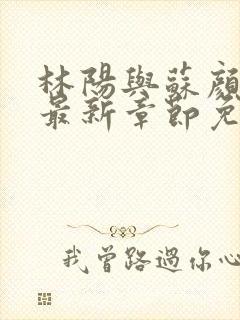 林陽與蘇顏
最新章節免
我曾路過你心